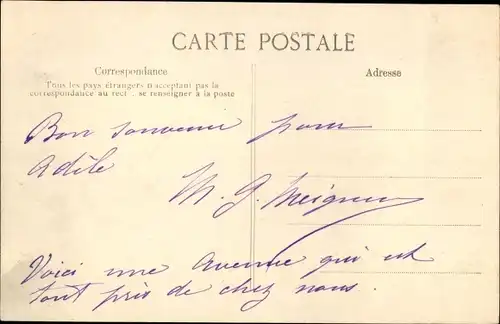 CARTE POSTALE
Correspondance
Adresse
Tous les pays étrangers n'acceptant pas la
correspondance au rect . se renseigner à la poste
Bon souvenir pour
Adèle
M. G.
Voici une avenue qui est
tout près de chez nous.